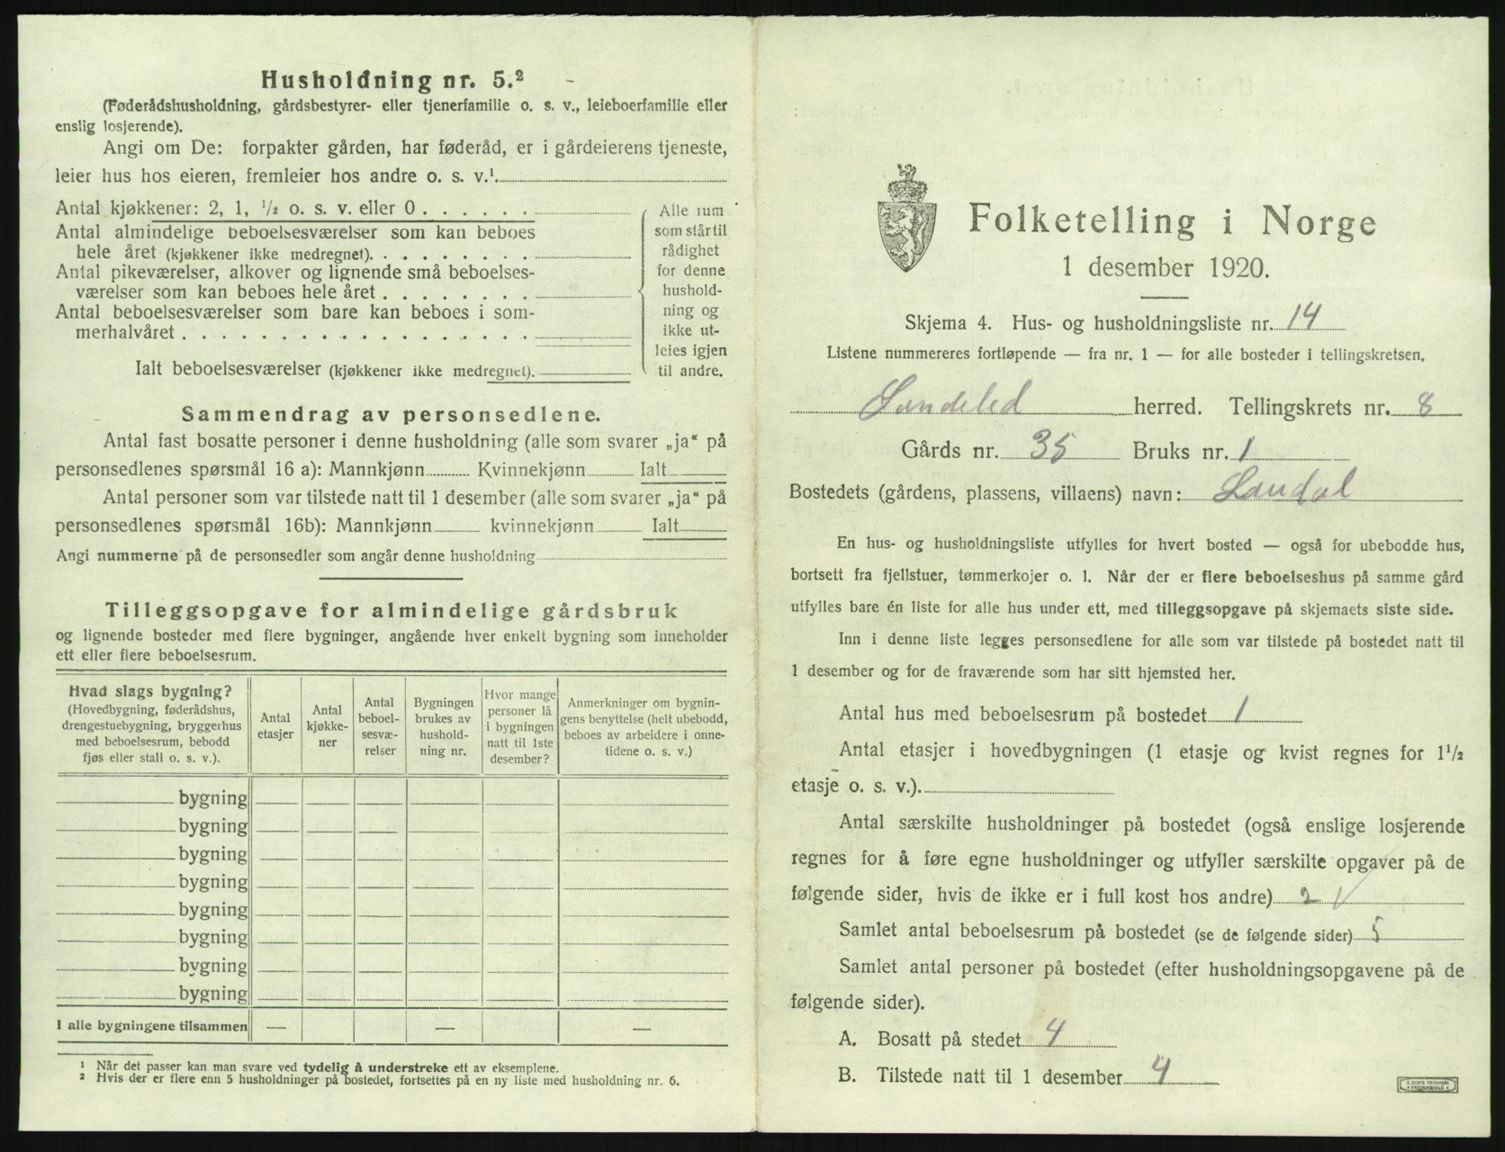 Husholdning nr. 5.²
(Føderådshusholdning, gårdsbestyrer- eller tjenerfamilie o. s. v., leieboerfamilie eller
enslig losjerende).
Angi om De: forpakter gården, har føderåd, er i gårdeierens tjeneste,
leier hus hos eieren, fremleier hos andre o. s. v.¹
Antal kjøkkener: 2, 1, ½ o. s. v. eller 0 . . . . . .
Antal almindelige beboelsesværelser som kan beboes
hele året (kjøkkener ikke medregnet). . . . . . . .
Antal pikeværelser, alkover og lignende små beboelses-
værelser som kan beboes hele året . . . . . . . .
Antal beboelsesværelser som bare kan beboes i som-
merhalvåret . . . . . . . . . . . . . . . . . .
Ialt beboelsesværelser (kjøkkener ikke medregnet).
Alle rum
som står til
rådighet
for denne
hushold-
ning og
ikke ut-
leies igjen
til andre.
Sammendrag av personsedlene.
Antal fast bosatte personer i denne husholdning (alle som svarer „ja“ på
personsedlenes spørsmål 16 a): Mannkjønn Kvinnekjønn Ialt
Antal personer som var tilstede natt til 1 desember (alle som svarer „ja“ på
personsedlenes spørsmål 16b): Mannkjønn kvinnekjønn Ialt
Angi nummerne på de personsedler som angår denne husholdning
Tilleggsopgave for almindelige gårdsbruk
og lignende bosteder med flere bygninger, angående hver enkelt bygning som inneholder
ett eller flere beboelsesrum.
Hvad slags bygning?
(Hovedbygning, føderådshus,
drengestuebygning, bryggerhus
med beboelsesrum, bebodd
fjøs eller stall o. s. v.).
Antal
etasjer
Antal
kjøkke-
ner
Antal
beboel-
sesvæ-
relser
Bygningen
brukes av
hushold-
ning nr.
Hvor mange
personer lå
i bygningen
natt til 1ste
desember?
Anmerkninger om bygnin-
gens benyttelse (helt ubebodd,
beboes av arbeidere i onne-
tidene o. s. v.)
bygning
bygning
bygning
bygning
bygning
bygning
bygning
bygning
I alle bygningene tilsammen — — —
¹ Når det passer kan man svare ved tydelig å understreke ett av eksemplene.
² Hvis der er flere enn 5 husholdninger på bostedet, fortsettes på en ny liste med husholdning nr. 6.
Folketelling i Norge
1 desember 1920.
Skjema 4. Hus- og husholdningsliste nr. 14
Listene nummereres fortløpende — fra nr. 1 — for alle bosteder i tellingskretsen.
Søndeled herred. Tellingskrets nr. 8
Gårds nr. 35 Bruks nr. 1
Bostedets (gårdens, plassens, villaens) navn: Landal
En hus- og husholdningsliste utfylles for hvert bosted — også for ubebodde hus,
bortsett fra fjellstuer, tømmerkojer o. l. Når der er flere beboelseshus på samme gård
utfylles bare én liste for alle hus under ett, med tilleggsopgave på skjemaets siste side.
Inn i denne liste legges personsedlene for alle som var tilstede på bostedet natt til
1 desember og for de fraværende som har sitt hjemsted her.
Antal hus med beboelsesrum på bostedet 1
Antal etasjer i hovedbygningen (1 etasje og kvist regnes for 1½
etasje o. s. v.).
Antal særskilte husholdninger på bostedet (også enslige losjerende
regnes for å føre egne husholdninger og utfyller særskilte opgaver på de
følgende sider, hvis de ikke er i full kost hos andre) 2 √
Samlet antal beboelsesrum på bostedet (se de følgende sider) 5
Samlet antal personer på bostedet (efter husholdningsopgavene på de
følgende sider).
A. Bosatt på stedet 4
B. Tilstede natt til 1 desember 4